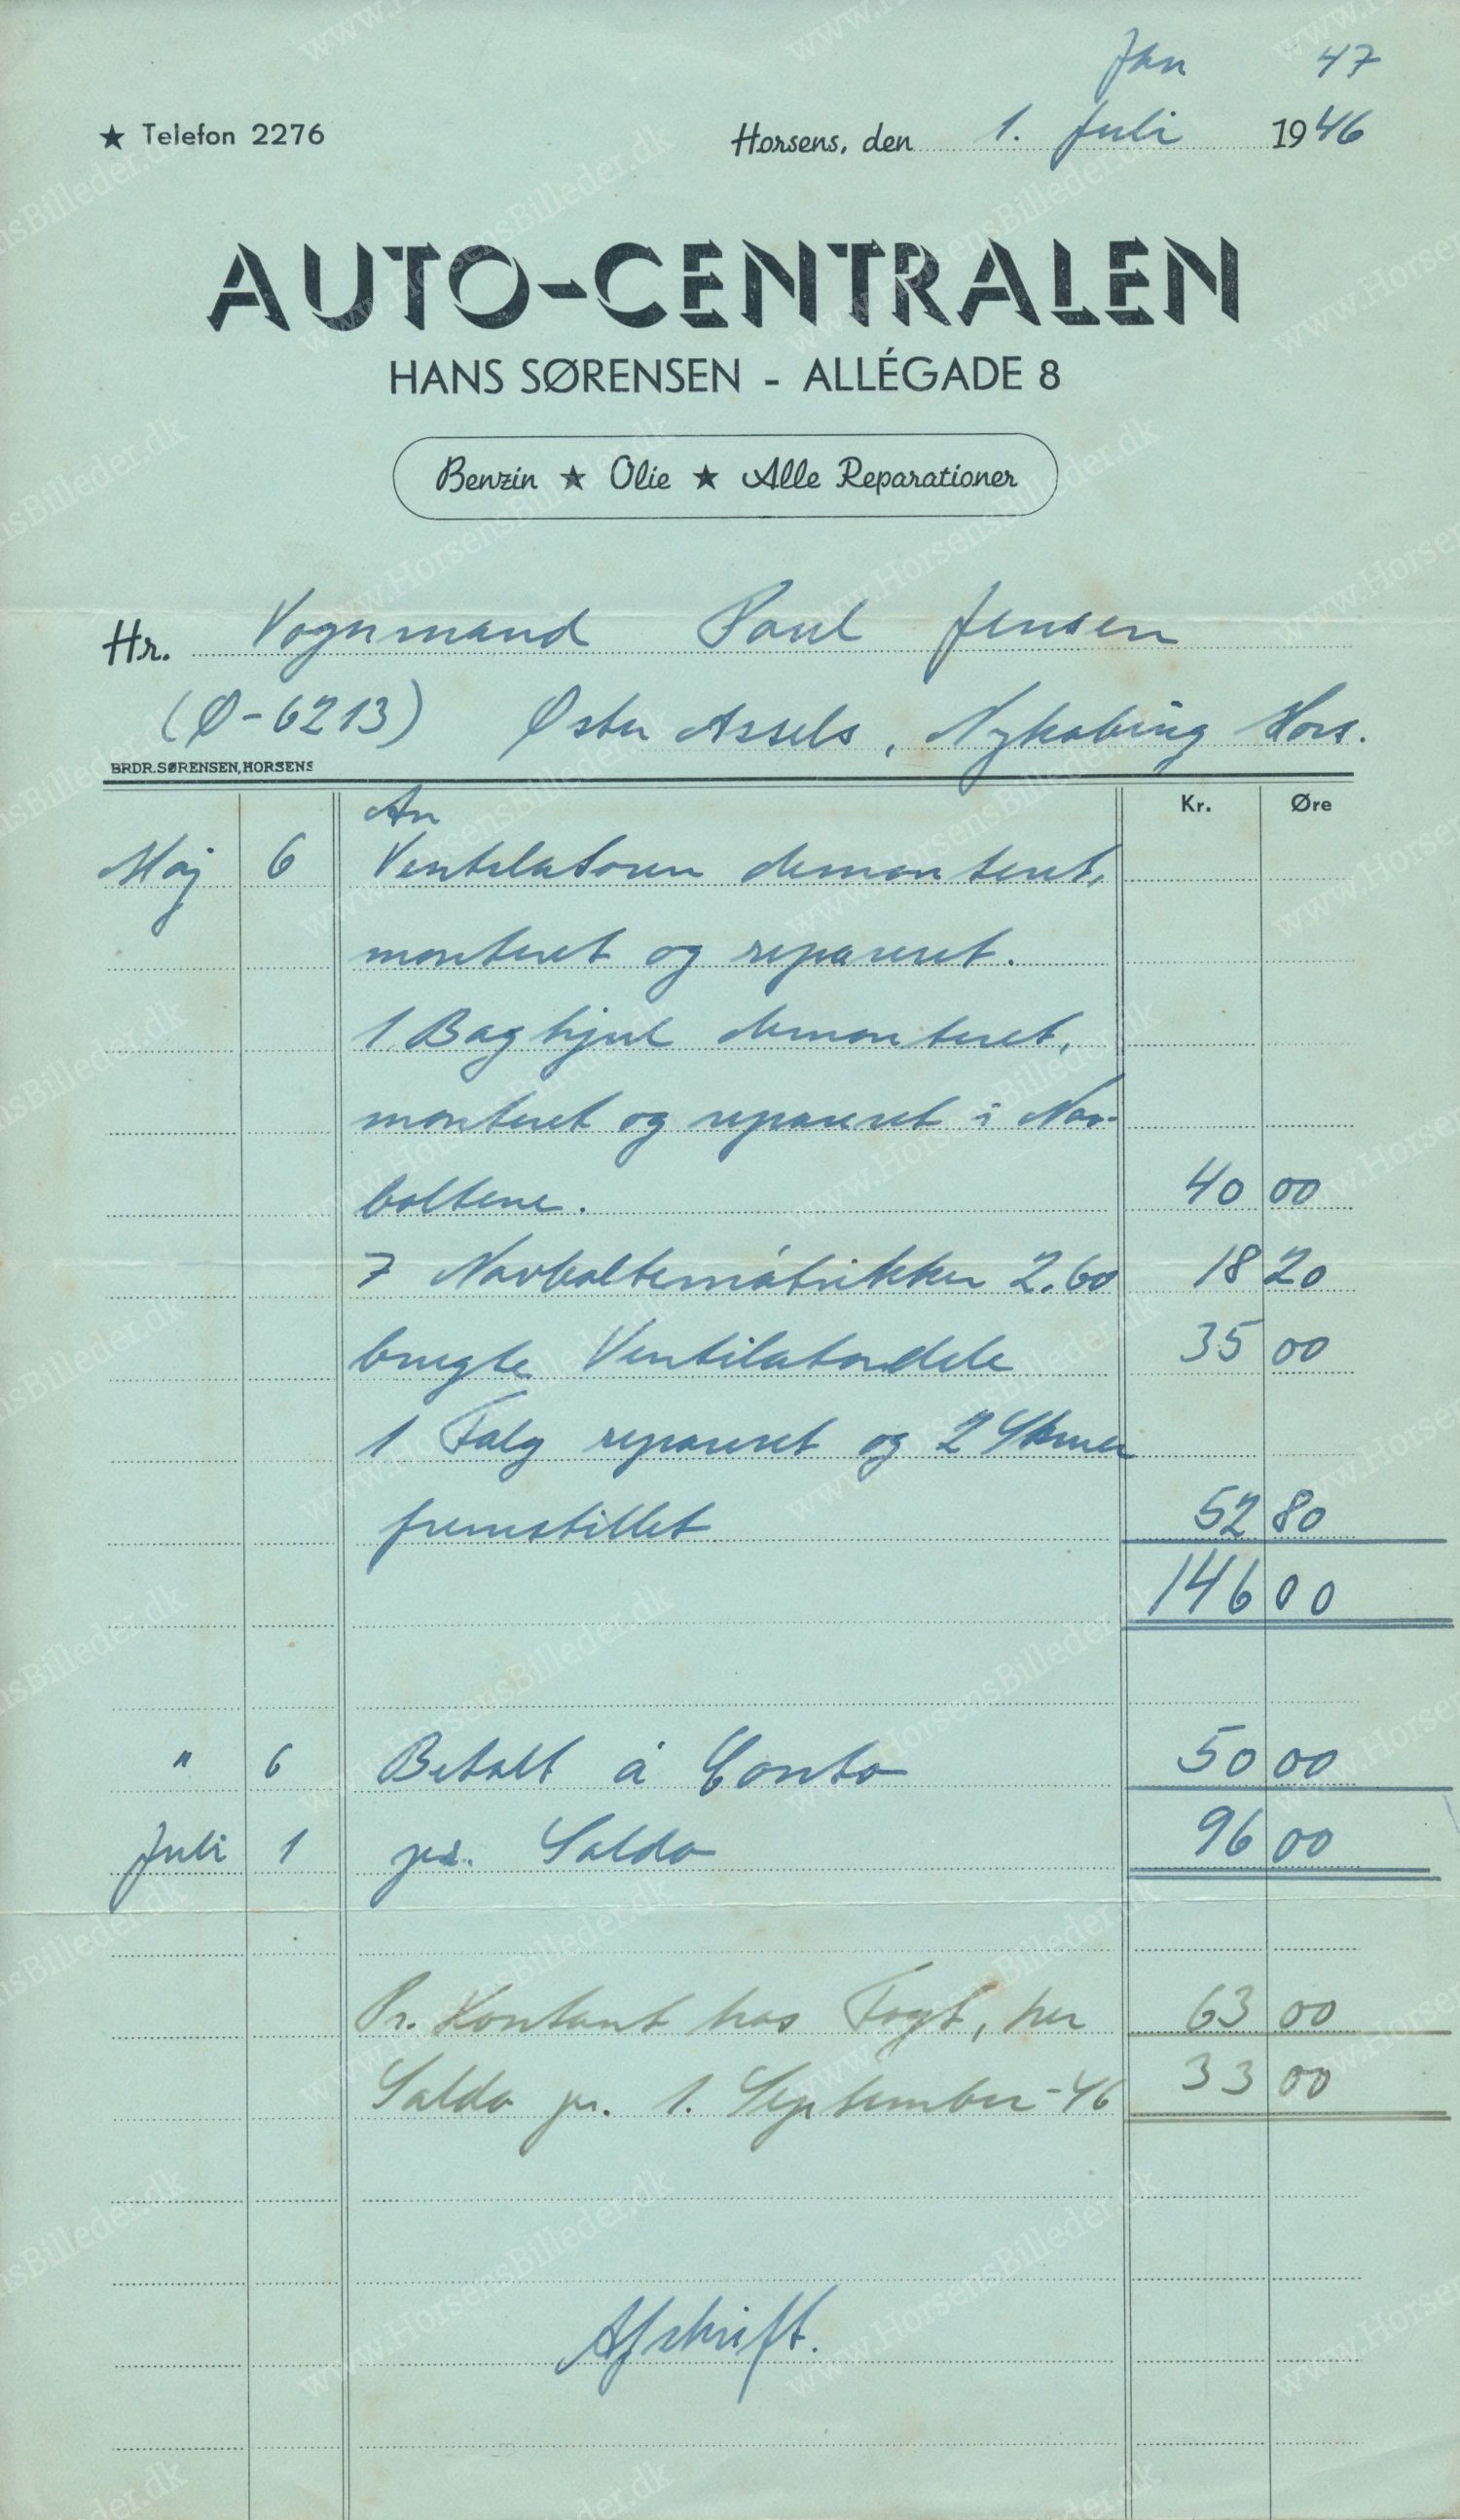 Jan 47
★ Telefon 2276 Horsens, den 1. Juli 1946
AUTO-CENTRALEN
HANS SØRENSEN - ALLÉGADE 8
Benzin ★ Olie ★ Alle Reparationer
Hr. Vognmand Poul Jensen
(Ø-6213) Øster Assels, Nykøbing Mors.
BRDR. SØRENSEN, HORSENS
An Kr. Øre
Maj 6 Ventilatoren demonteret,
monteret og repareret.
1 Baghjul demonteret,
monteret og repareret i Nav-
boltene. 40 00
7 Navboltemøtrikker 2.60 18 20
brugte Ventilatordele 35 00
1 Fælg repareret og 2
fremstillet 52 80
146 00
" 6 Betalt á Conto 50 00
Juli 1 pr. Saldo 96 00
Pr. Kontant hos Fogt, her 63 00
Saldo pr. 1. September-46 33 00
Afskrift.
www.HorsensBilleder.dk